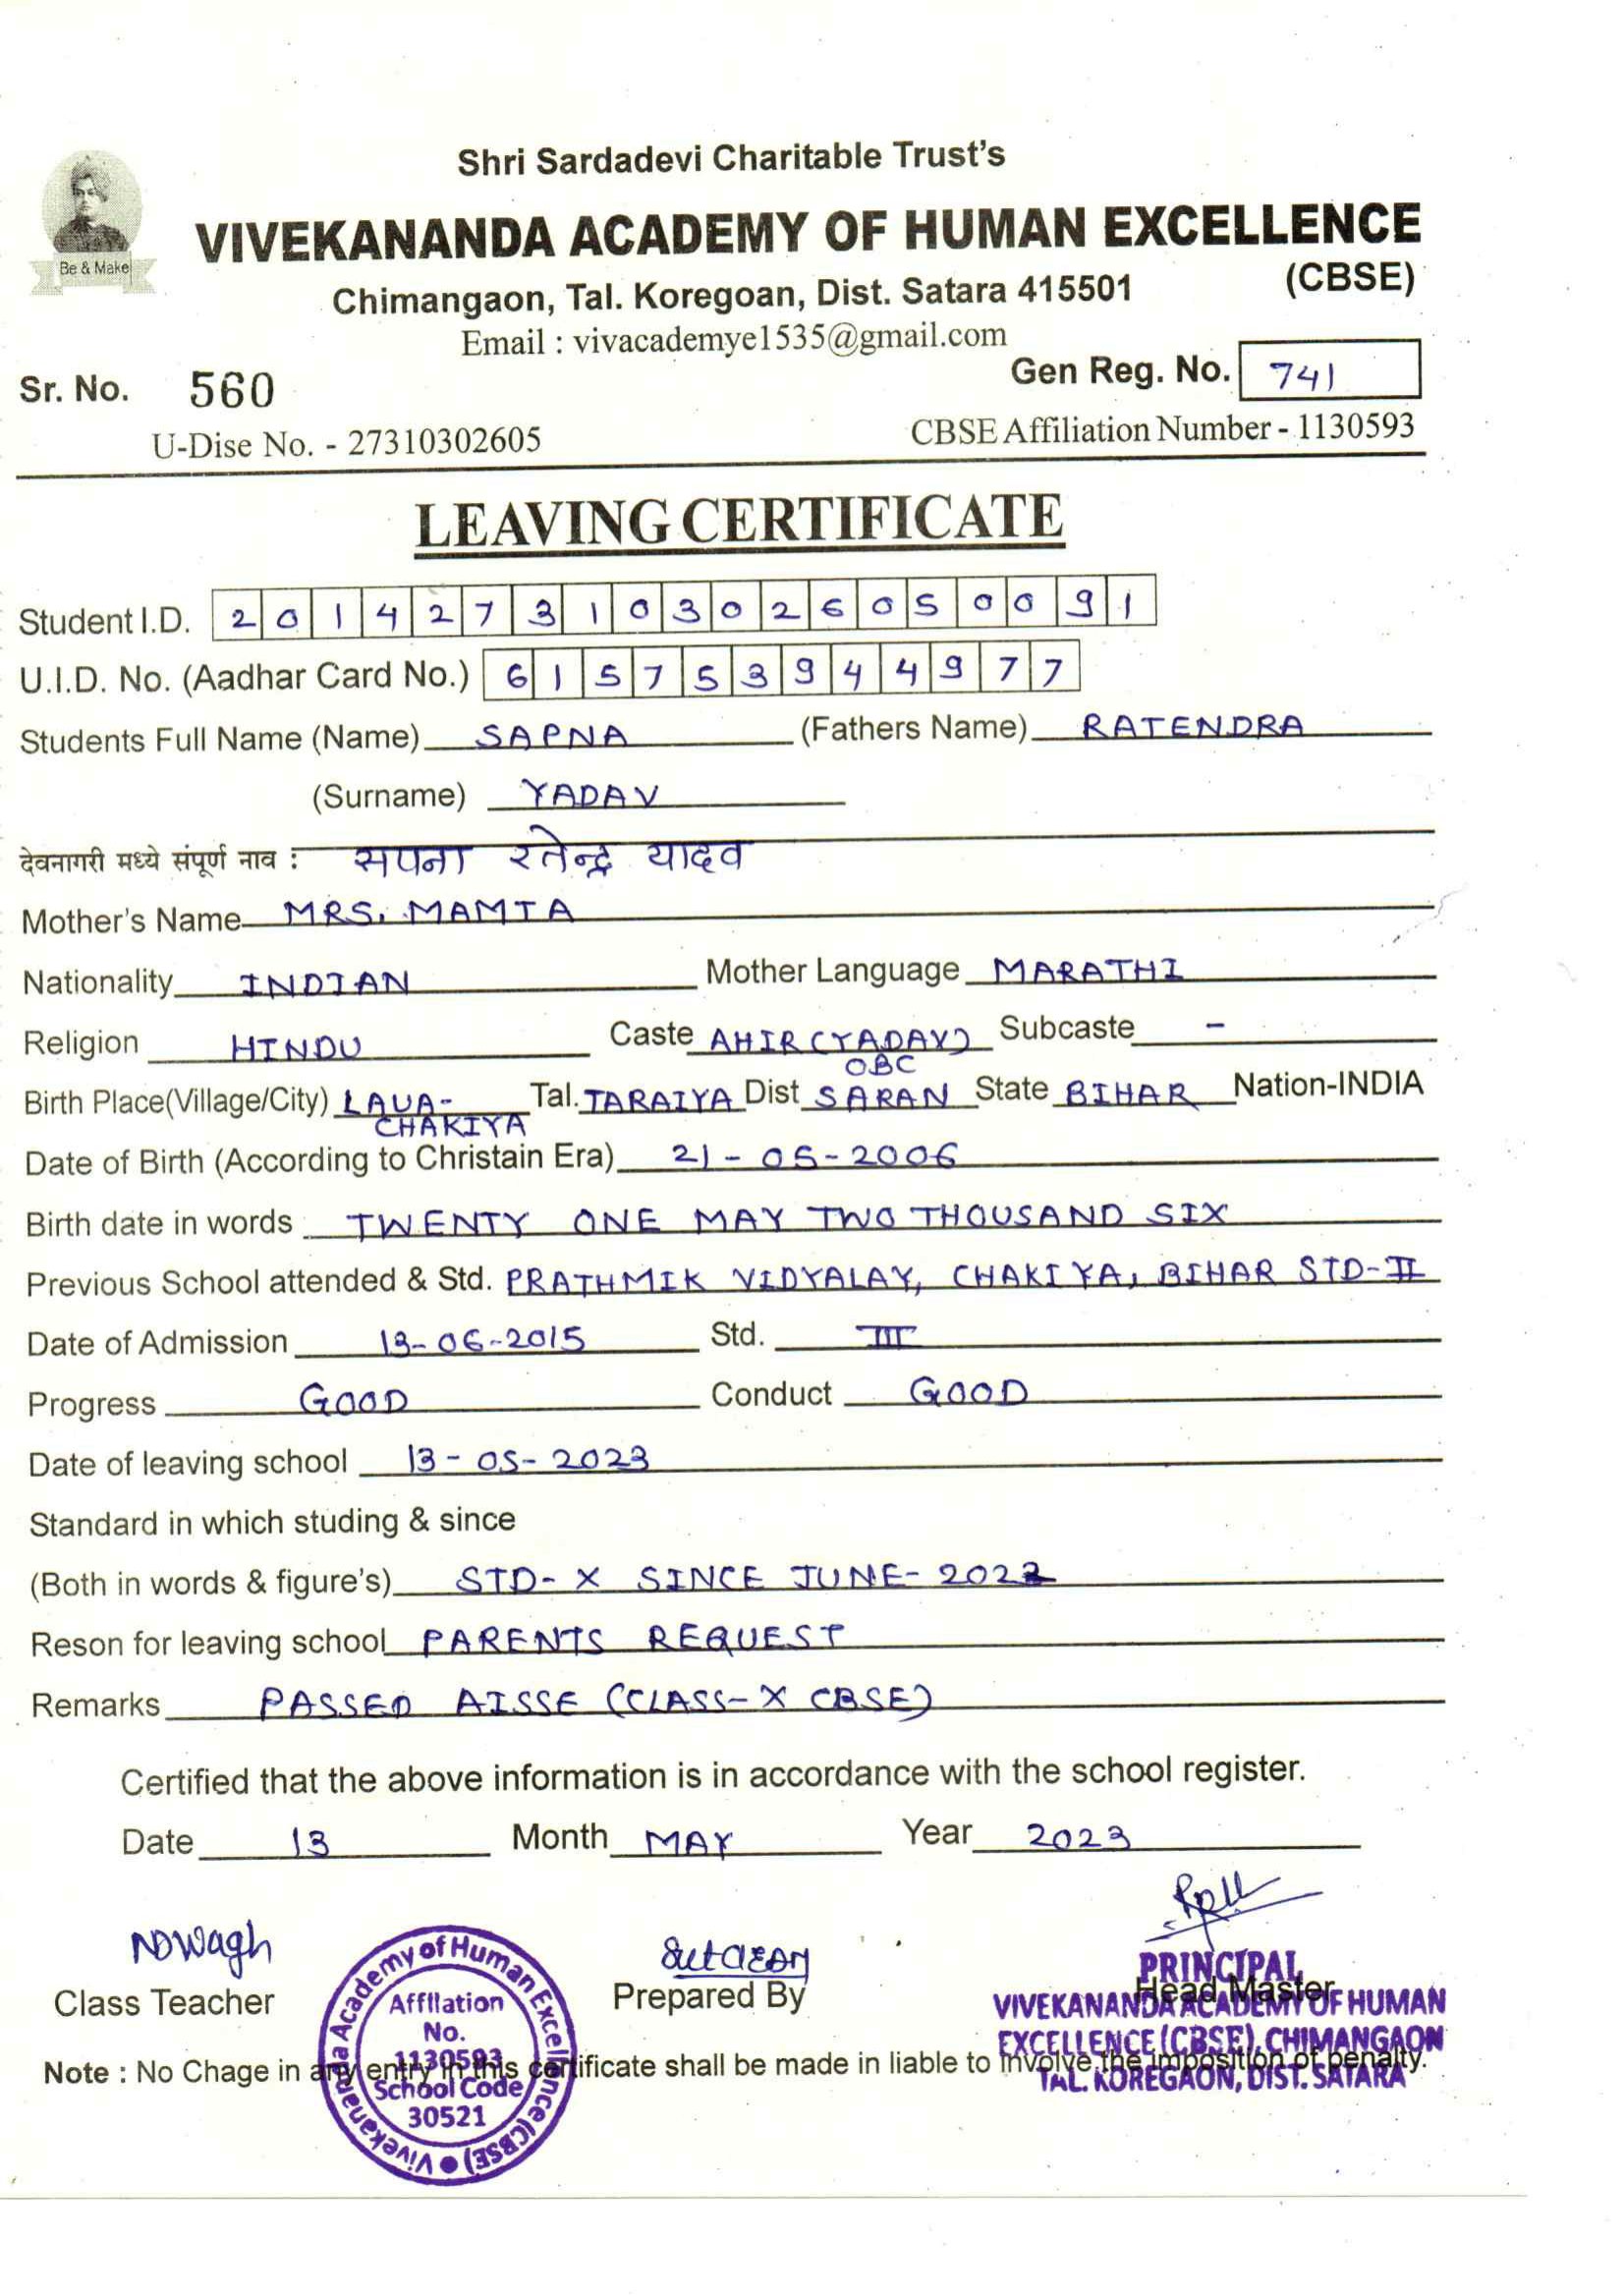 Shri Sardadevi Charitable Trust's
Be & Make
VIVEKANANDA ACADEMY OF HUMAN EXCELLENCE
(CBSE)
Chimangaon, Tal. Koregoan, Dist. Satara 415501
Email : vivacademye1535@gmail.com
Sr. No. 560 Gen Reg. No. 741
U-Dise No. - 27310302605 CBSE Affiliation Number - 1130593
LEAVING CERTIFICATE
Student I.D. 2014273103026050091
U.I.D. No. (Aadhar Card No.) 615753944977
Students Full Name (Name) SAPNA (Fathers Name) RATENDRA
(Surname) YADAV
देवनागरी मध्ये संपूर्ण नाव : सपना रतेन्द्र यादव
Mother's Name MRS. MAMTA
Nationality INDIAN Mother Language MARATHI
Religion HINDU Caste AHIR (YADAV) OBC Subcaste -
Birth Place(Village/City) LAUA-CHAKIYA Tal. TARAIYA Dist SARAN State BIHAR Nation-INDIA
Date of Birth (According to Christain Era) 21-05-2006
Birth date in words TWENTY ONE MAY TWO THOUSAND SIX
Previous School attended & Std. PRATHMIK VIDYALAY, CHAKIYA, BIHAR STD-II
Date of Admission 13-06-2015 Std. III
Progress GOOD Conduct GOOD
Date of leaving school 13-05-2023
Standard in which studing & since
(Both in words & figure's) STD-X SINCE JUNE-2022
Reson for leaving school PARENTS REQUEST
Remarks PASSED AISSE (CLASS-X CBSE)
Certified that the above information is in accordance with the school register.
Date 13 Month MAY Year 2023
NDWagh
Class Teacher
Prepared By
Head Master
PRINCIPAL
VIVEKANANDA ACADEMY OF HUMAN
EXCELLENCE (CBSE), CHIMANGAON
TAL. KOREGAON, DIST. SATARA
Vivekananda Academy of Human Excellence (CBSE)
Affilation
No.
1130593
School Code
30521
Note : No Chage in any entry in this certificate shall be made in liable to involve the imposition of penalty.